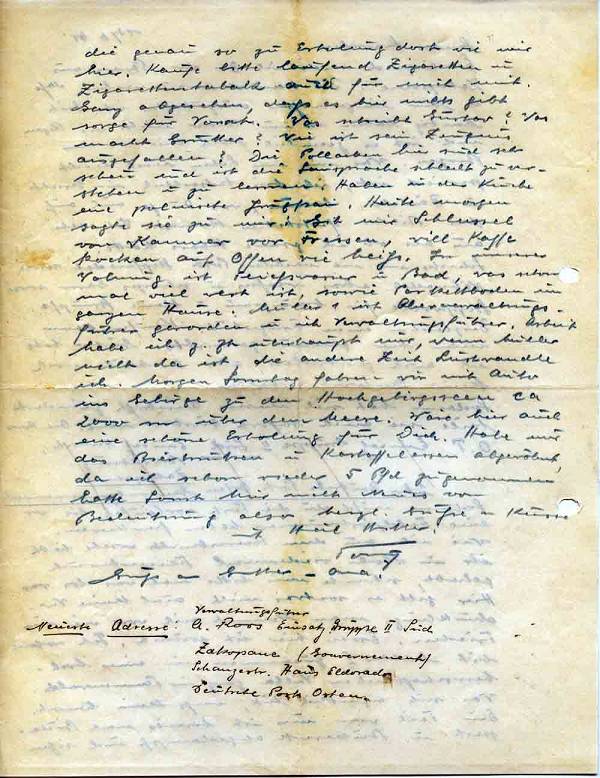 die genau so zu Erholung dort wie wir
hier. Kaufe bitte laufend Zigaretten u
Zigarettentabak auch für mich mit.
Ganz abgesehen, dass es hier nichts gibt
sorge für Vorrat. Was schreibt Gustav? Was
macht Brutter? Wie ist sein Zeugnis
ausgefallen? Die Pollacken hier sind sehr
scheu und ist die Landsprache schlecht zu ver-
stehen u zu lernen. Haben in der Küche
eine polnische. Heute morgen
sagte sie zu mir: Gib mir Schlüssel
von Kammer vor Fressen, will Kaffe
kochen auf Offen wie heiss. In unserer
Wohnung ist Fliesswasser u Bad, was schon
mal viel wert ist, sowie Parkettboden im
ganzen Hause. Müller ist Oberverwaltungs-
führer geworden u ich Verwaltungsführer. Arbeit
habe ich z. Zt überhaupt nur, wenn Müller
nicht da ist, die andere Zeit Lustwandle
ich. Morgen Sonntag fahren wir mit Auto
ins Gebirge zu den Hochgebirgsseen ca
2000 m über dem Meere. Wäre hier auch
eine schöne Erholung für Dich. Habe mir
das Biertrinken u Kartoffelessen abgewöhnt,
da ich schon wieder 5 Pfd zugenommen
hatte. Sonst hier nicht Neues von
Bedeutung also herzl. Grüße u Küsse
mit Heil Hitler!
Gruß an Mutter - Oma!
Verwaltungsführer
Neueste Adresse: A. Roos Einsatz Gruppe II Süd
Zakopane (Gouvernement)
Schanzestr. Haus Eldorado
Deutsche Post Osten.